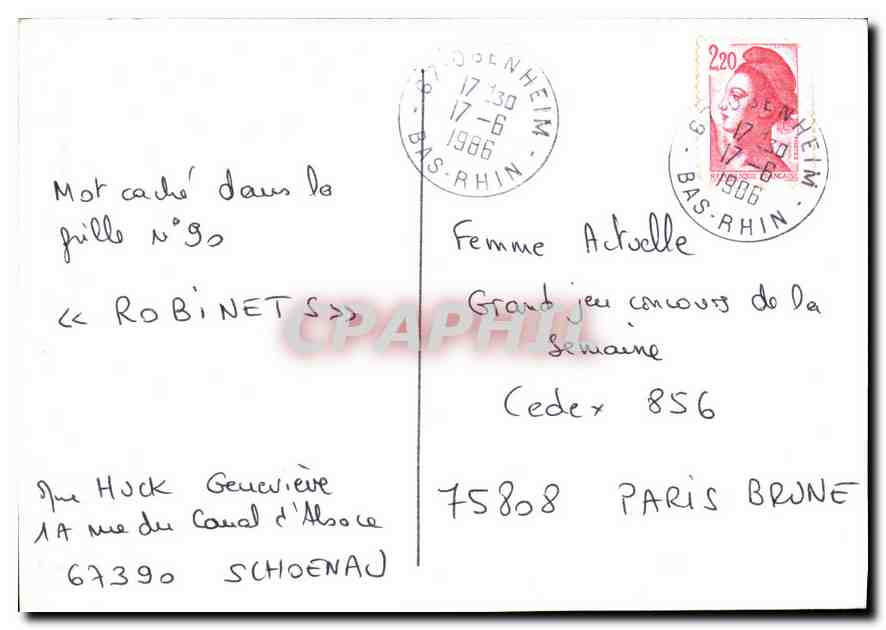 Mot caché dans la
grille N°90
<< ROBINETS >>
Mme HUCK Geneviève
1A rue du Canal d'Alsace
67390 SCHOENAU
17 30
17 -6
1986
BAS-RHIN
2,20
17 30
17 -6
1986
BAS-RHIN
Femme Actuelle
Grand jeu concours de la
semaine
Cedex 856
75808 PARIS BRUNE
CPAPHIL